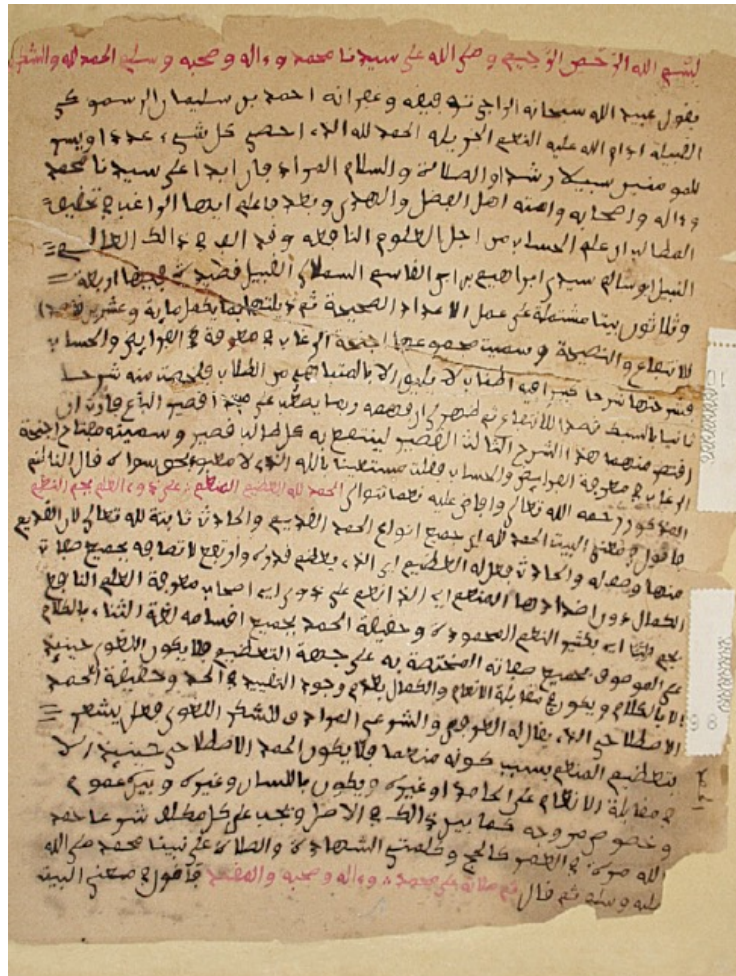 بسم الله الرحمن الرحيم و صلى الله على سيدنا محمد و ءاله و صحبه و سلم الحمد لله والشكر
يقول عبيد الله سبحانه الراجي توفيقه و غفرانه احمد بن سليمان الرسموكي
القبيلة ادام الله عليه النعم الجزيلة الحمد لله الذي احصى كل شيء عددا ويسر
للمومنين سبيلا رشدا والصلاة والسلام ابدا على سيدنا محمد
وءاله واصحابه وامته اهل الفضل والهدى وبعد فاعلم ايها الراغب في تحقيق
المطالب ان علم الحساب من اجل العلوم النافعة وقد الف في ذالك
النبيل ابو سالم سيدي ابراهيم بن ابي القاسم السملالي القبيل قصيدة فيها اربعة
وثلاثون بيتا مشتملة على عمل الاعداد الصحيحة ثم ذيلتها بما يكمل ماية وعشرين
للانتفاع والنصيحة وسميت مجموعها اجنحة الرغاب في معرفة الفرايض والحساب
فشرحتها شرحا كبيرا فيه اطناب لا يليق الا من الطلاب منه شرحا
ثانيا قصدا للانتفاع ثم ظهر لي ان فهمه ربما يصعب على قصير الباع فاردت ان
اختصر منهما هذا الشرح الثالث القصير لينتفع به كل طالب قصير وسميته مفتاح اجنحة
الرغاب في معرفة الفرايض والحساب فقلت مستعينا بالله الذي لا معبود بحق سواه قال الناظم
المذكور رحمه الله تعالى وافاض عليه نعما تتوالى الحمد لله العظيم المنعم على ذوي العلم
فاقول في معنى البيت الحمد لله اي جميع انواع الحمد القديم والحادث ثابتة لله تعالى لان القديم
منها وصفه والحادث فعله العظيم اي الذي يعظم قدره وارتفع لاتصافه بجميع صفات
الكمال دون اضدادها المنعم اي الذي انعم على ذوي اي اصحاب معرفة العلم النافع
النعم المحمودة وحقيقة الحمد بجميع اقسامه لغة الثناء بالكلام
على الموصوف بجميع صفاته المختصة به على جهة التعظيم فلا يكون اللغوي حينيذ
الا بالكلام ويكون في مقابلة الانعام والكمال لعدم وجود التقييد في الحد وحقيقة الحمد
الاصطلاحي الذي يقال له العرفي والشرعي المرادف للشكر اللغوي فعل يشعر
بتعظيم المنعم بسبب كونه منعما فلا يكون الحمد الاصطلاحي حينيذ الا
في مقابلة الانعام على الحامد او غيره ويكون باللسان وغيره وبينهما عموم
وخصوص من وجه كما بين ذالك في الاصل ويجب على كل مكلف شرعا حمد
الله مرة في العمر كالحج وكلمتي الشهادة والصلاة على نبينا محمد صلى الله
عليه وسلم ثم قال ثم صلاته على محمد وءاله وصحبه فاقول في معنى البيت